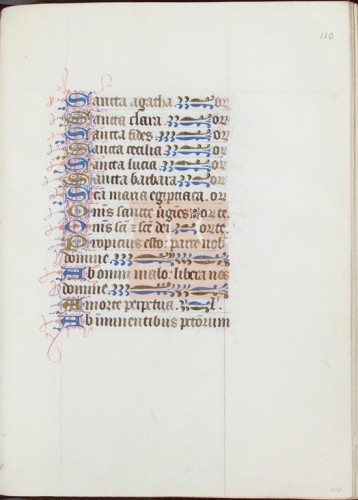 110
Sancta agatha or
Sancta clara or
Sancta fides or
Sancta cecilia or
Sancta lucia or
Sancta barbara or
Scā maria egiptiaca or
Om̄is sancte ṽgīes orte.
Om̄s scī ⁊ sce dei orte.
Propicius esto: parce nob̄
domine.
Ab omni malo: libera nos
domine.
A morte perpetua. l.
Ab īminentibus pctōrum